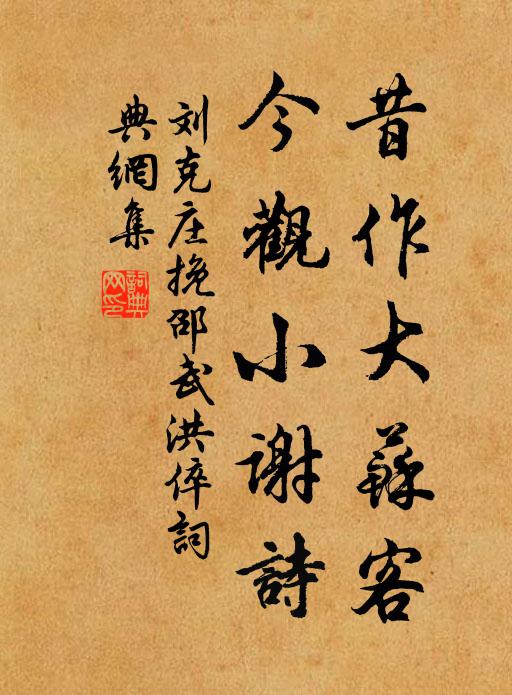 昔作大蘇客
今觀小謝詩
刘克庄挽邵武洪倅詞
典網集
詞典网印